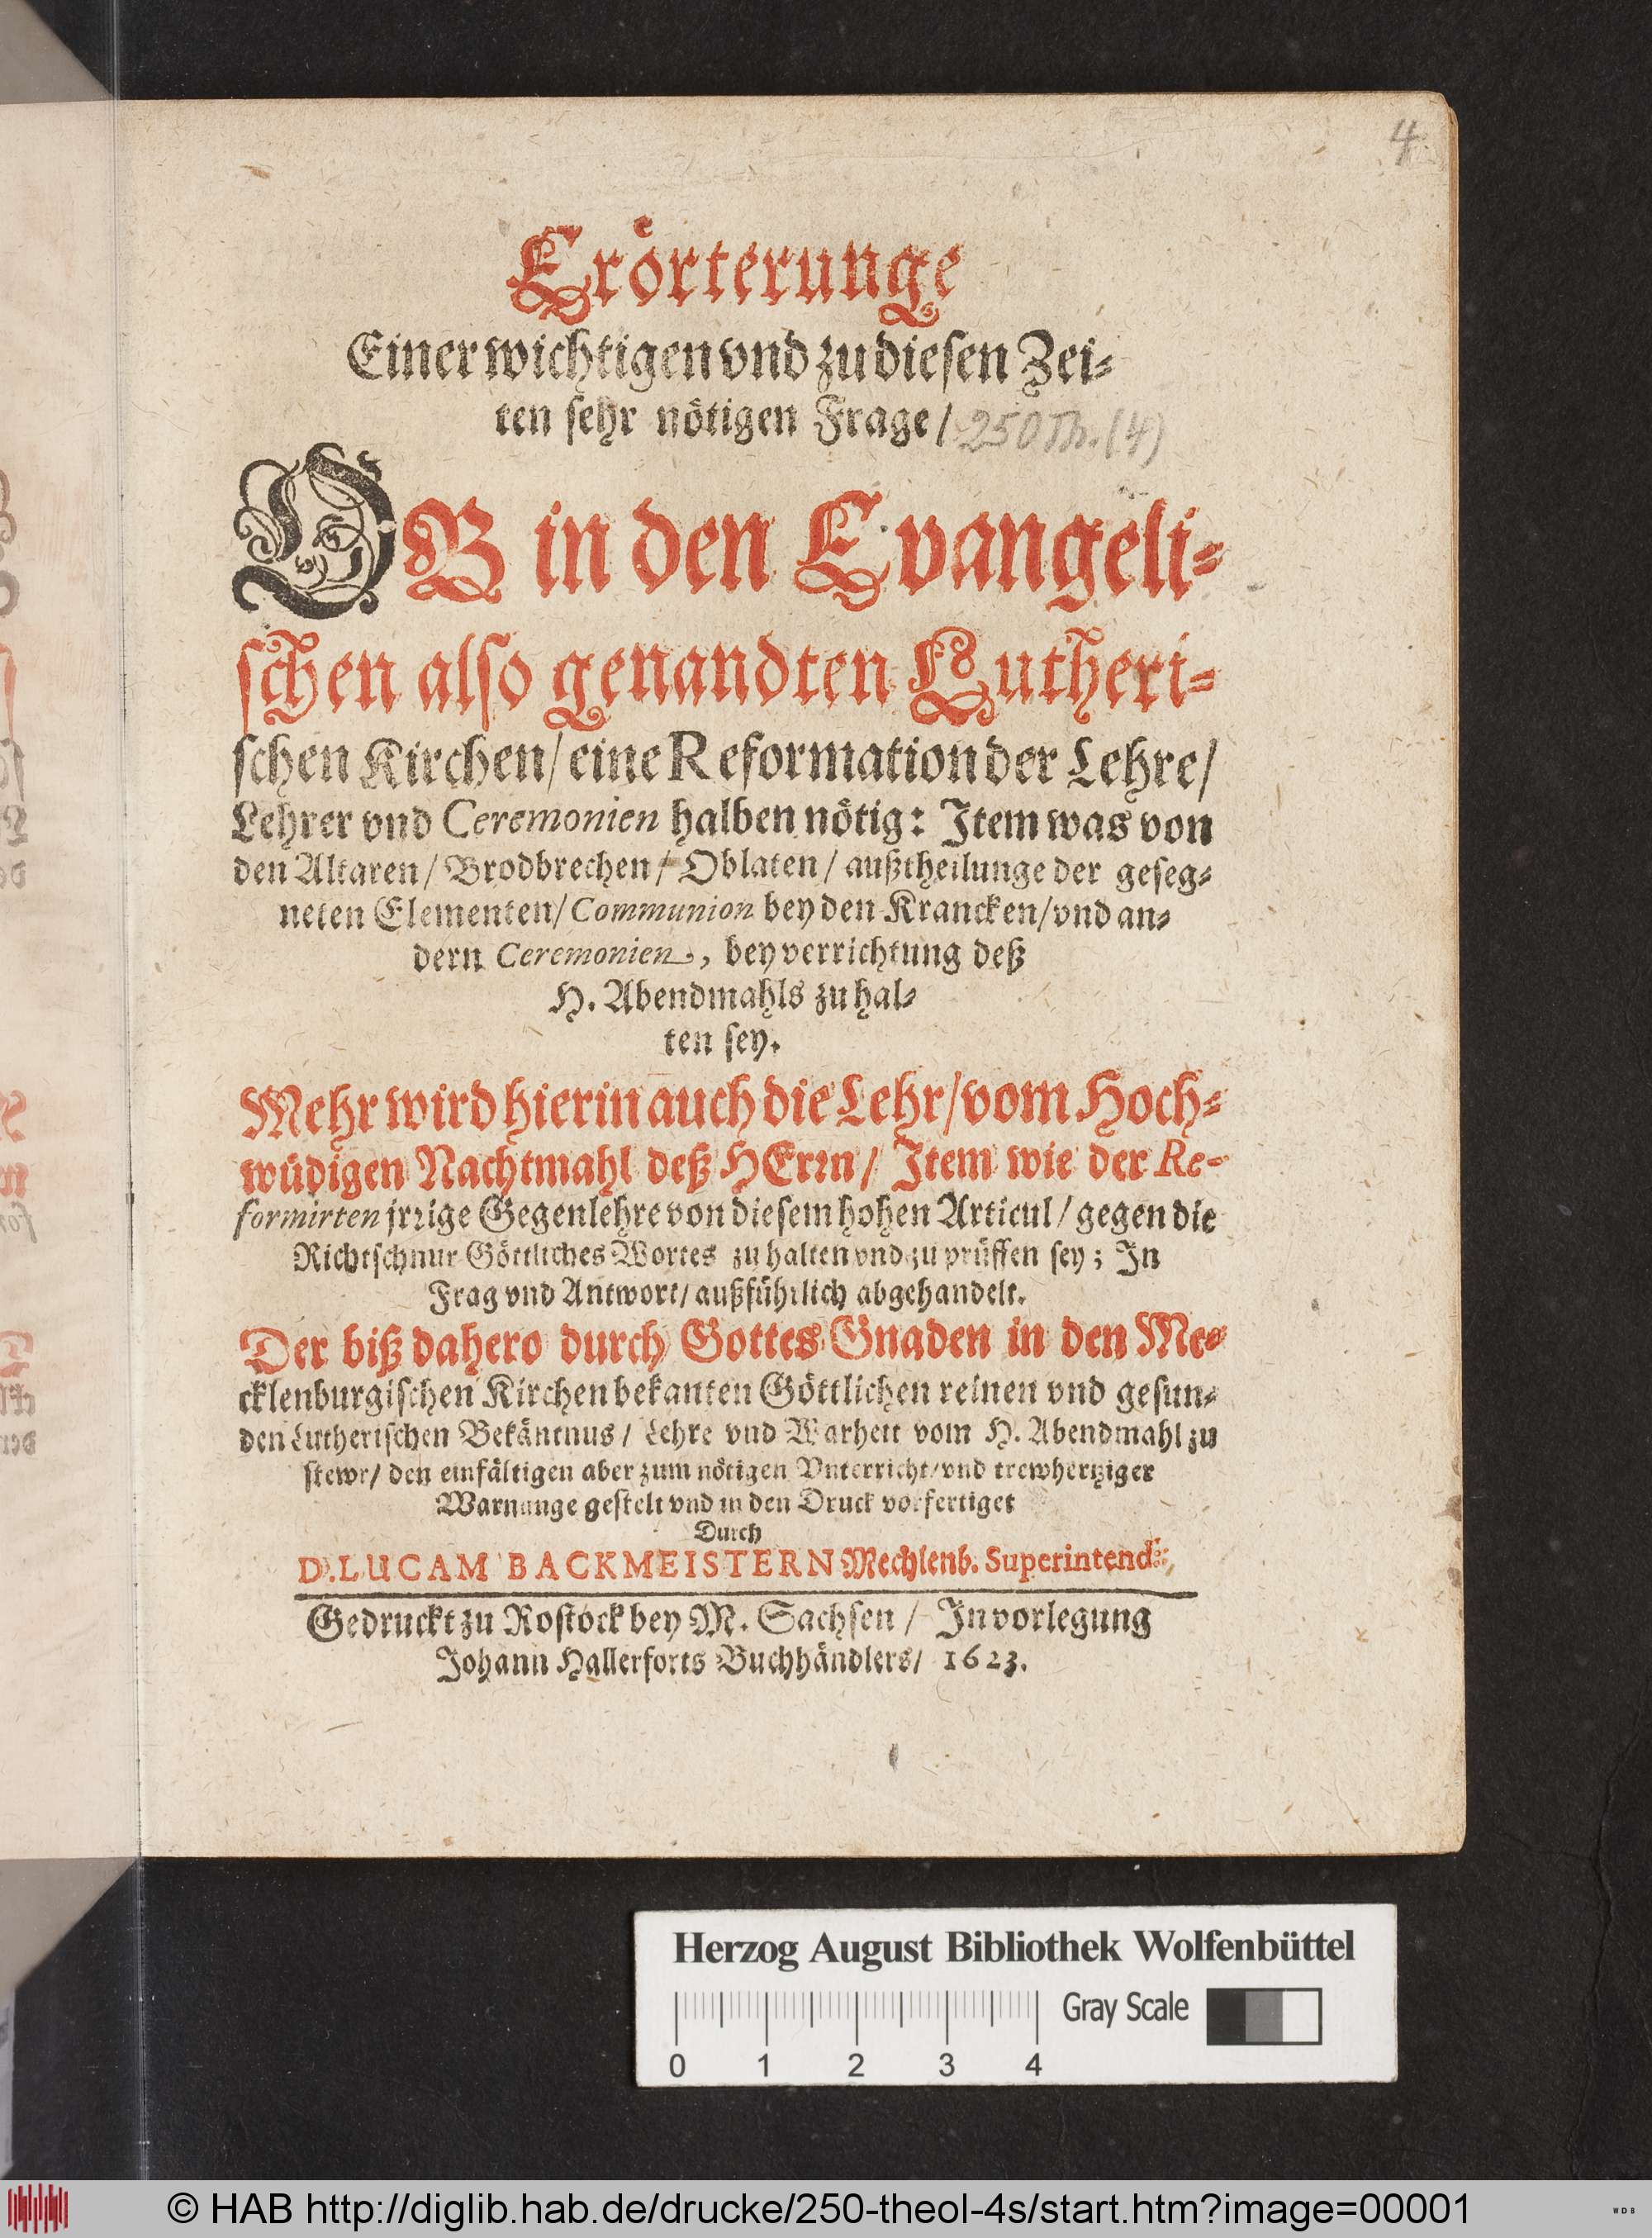 4.
Erörterunge
Einer wichtigen vnd zu diesen Zei-
ten sehr nötigen Frage/ 250 Th. (4)
OB in den Evangeli-
schen also genandten Lutheri-
schen Kirchen/ eine Reformation der Lehre/
Lehrer vnd Ceremonien halben nötig: Item was von
den Altaren/ Brodbrechen/ Oblaten/ außtheilunge der geseg-
neten Elementen/ Communion bey den Krancken/ vnd an-
dern Ceremonien, bey verrichtung deß
H. Abendmahls zu hal-
ten sey.
Mehr wird hierin auch die Lehr/ vom Hoch-
wüdigen Nachtmahl deß HErrn/ Item wie der Re-
formirten jrrige Gegenlehre von diesem hohen Articul/ gegen die
Richtschnur Göttliches Wortes zu halten vnd zu prüffen sey; In
Frag vnd Antwort/ außführlich abgehandelt.
Der biß dahero durch Gottes Gnaden in den Me-
cklenburgischen Kirchen bekanten Göttlichen reinen vnd gesun-
den Lutherischen Bekäntnus/ Lehre vnd Warheit vom H. Abendmahl zu
stewr/ den einfältigen aber zum nötigen Vnterricht/ vnd trewhertziger
Warnunge gestelt vnd in den Druck vorfertiget
Durch
D. LUCAM BACKMEISTERN Mechlenb. Superintend:
Gedruckt zu Rostock bey M. Sachsen/ In vorlegung
Johann Hallerforts Buchhändlers/ 1623.
Herzog August Bibliothek Wolfenbüttel
Gray Scale
0 1 2 3 4
© HAB http://diglib.hab.de/drucke/250-theol-4s/start.htm?image=00001
WDB